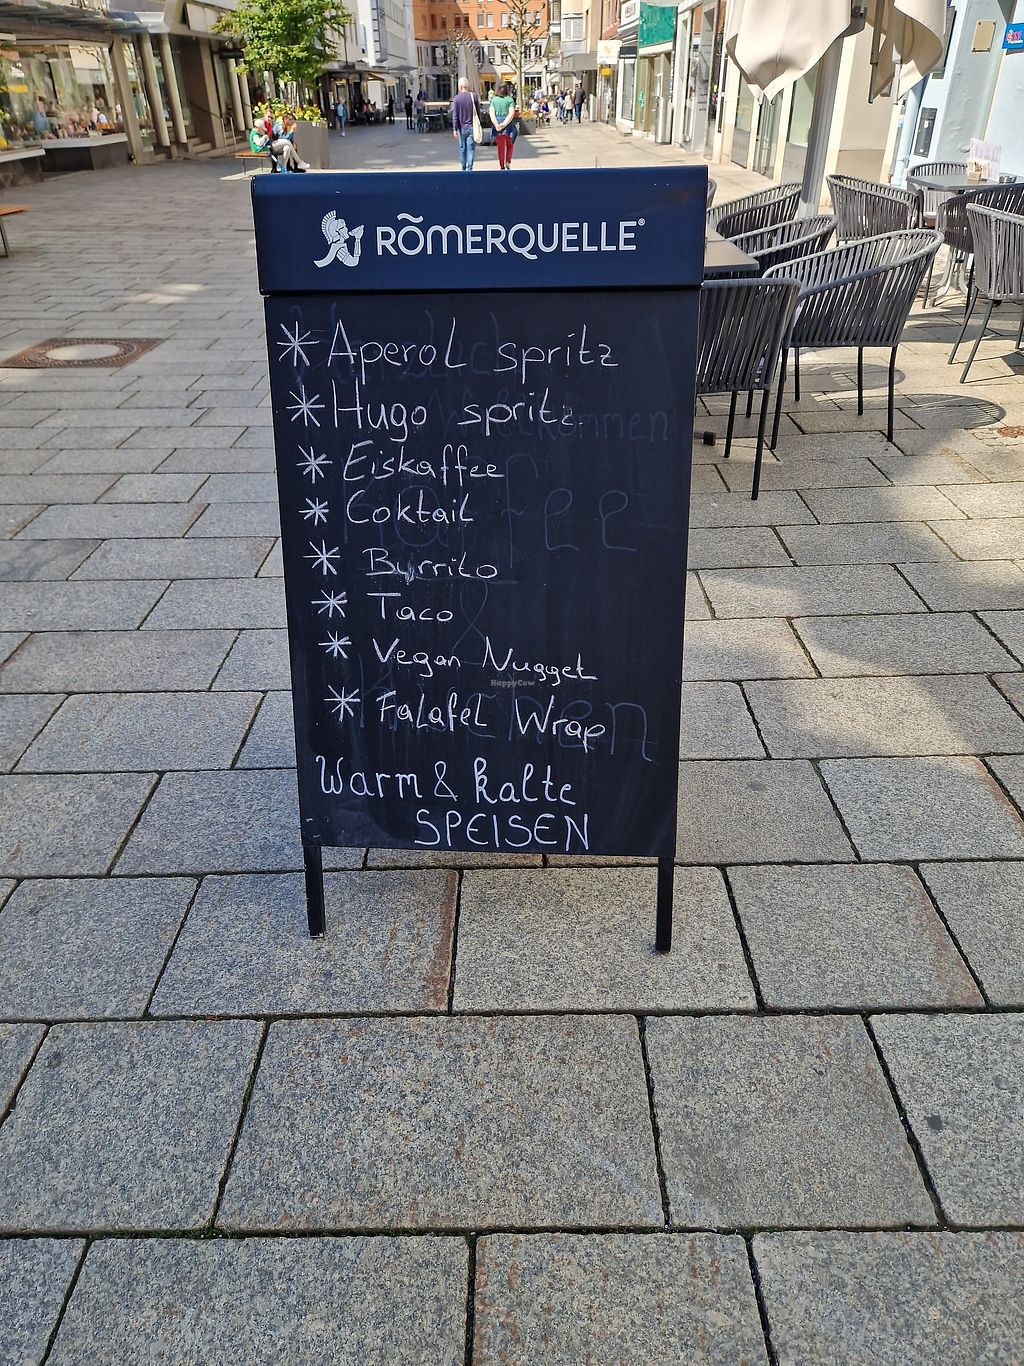 RÖMERQUELLE®
* Aperol spritz
* Hugo spritz
* Eiskaffee
* Coktail
* Burrito
* Taco
* Vegan Nugget
HappyCow
* Falafel Wrap
Warm & kalte
SPEISEN